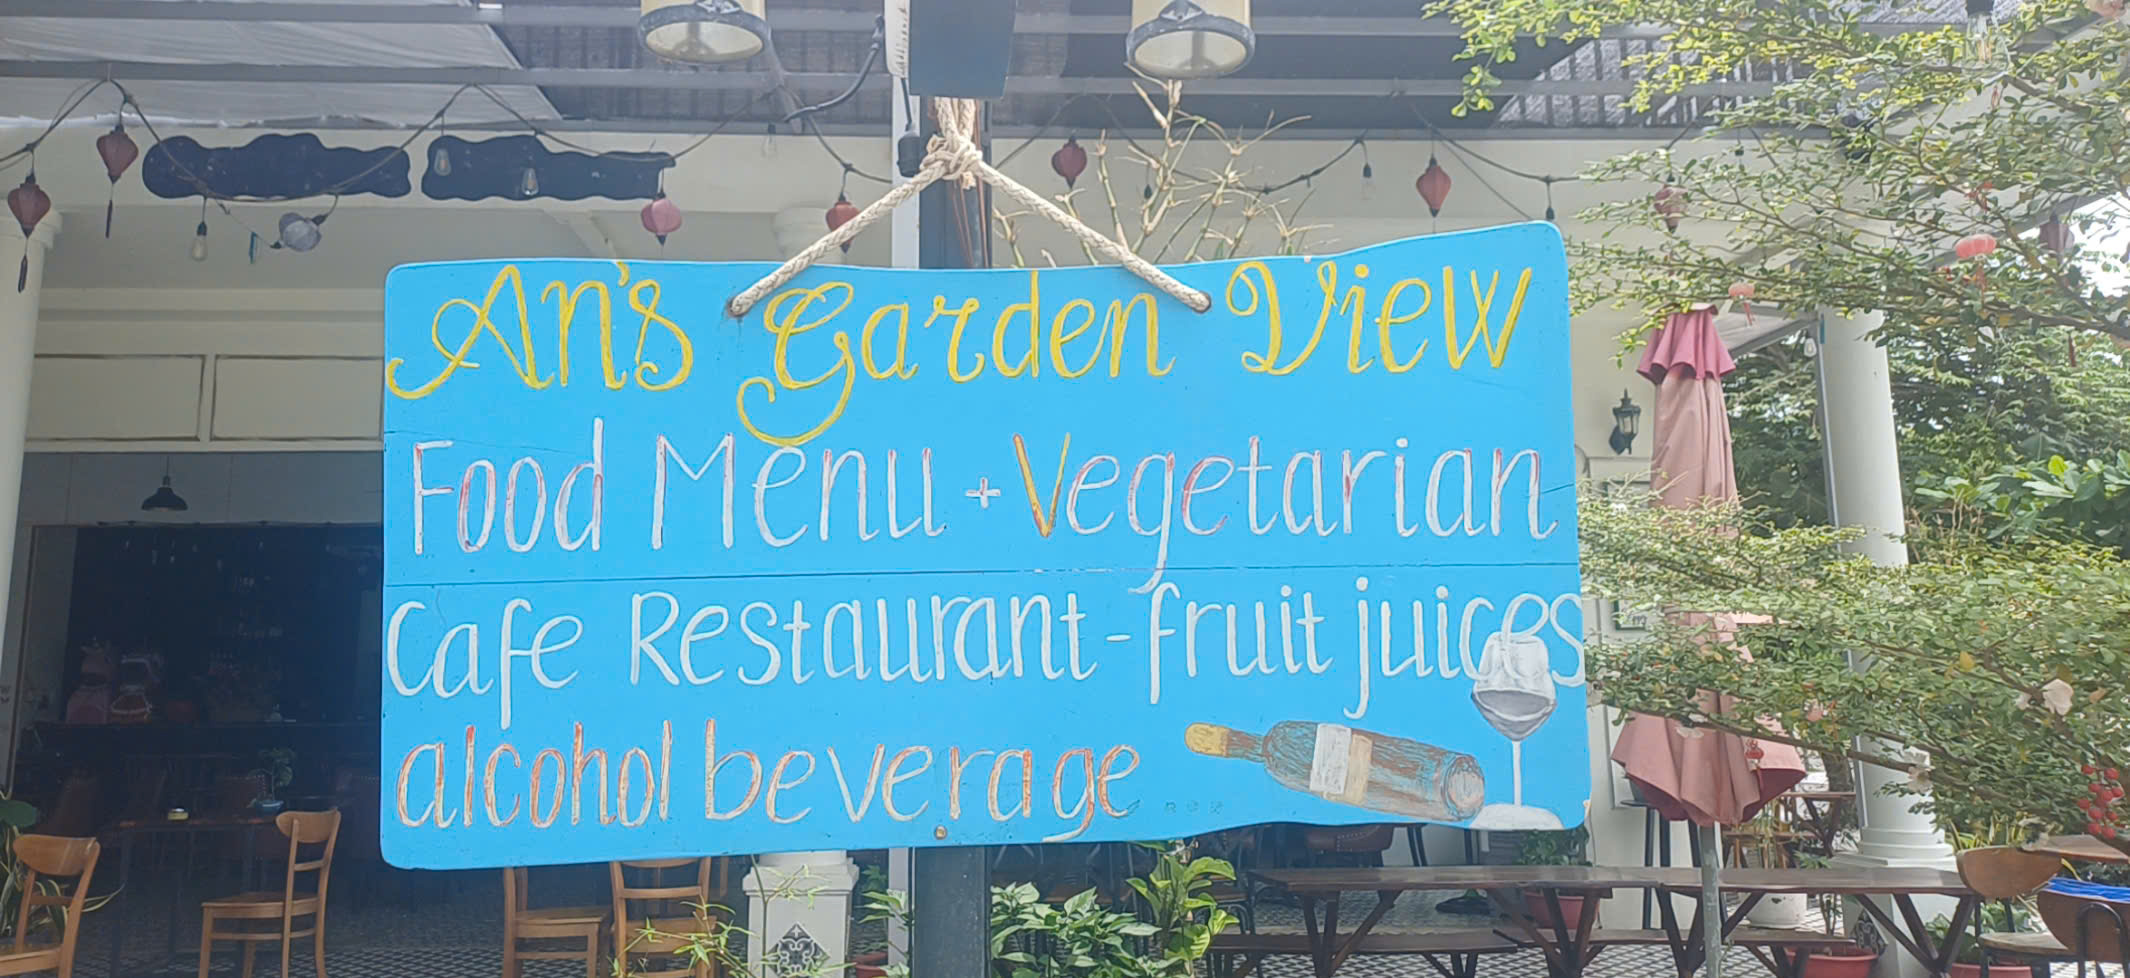 An's Garden View
Food Menu + Vegetarian
Cafe Restaurant - fruit juices
alcohol beverage